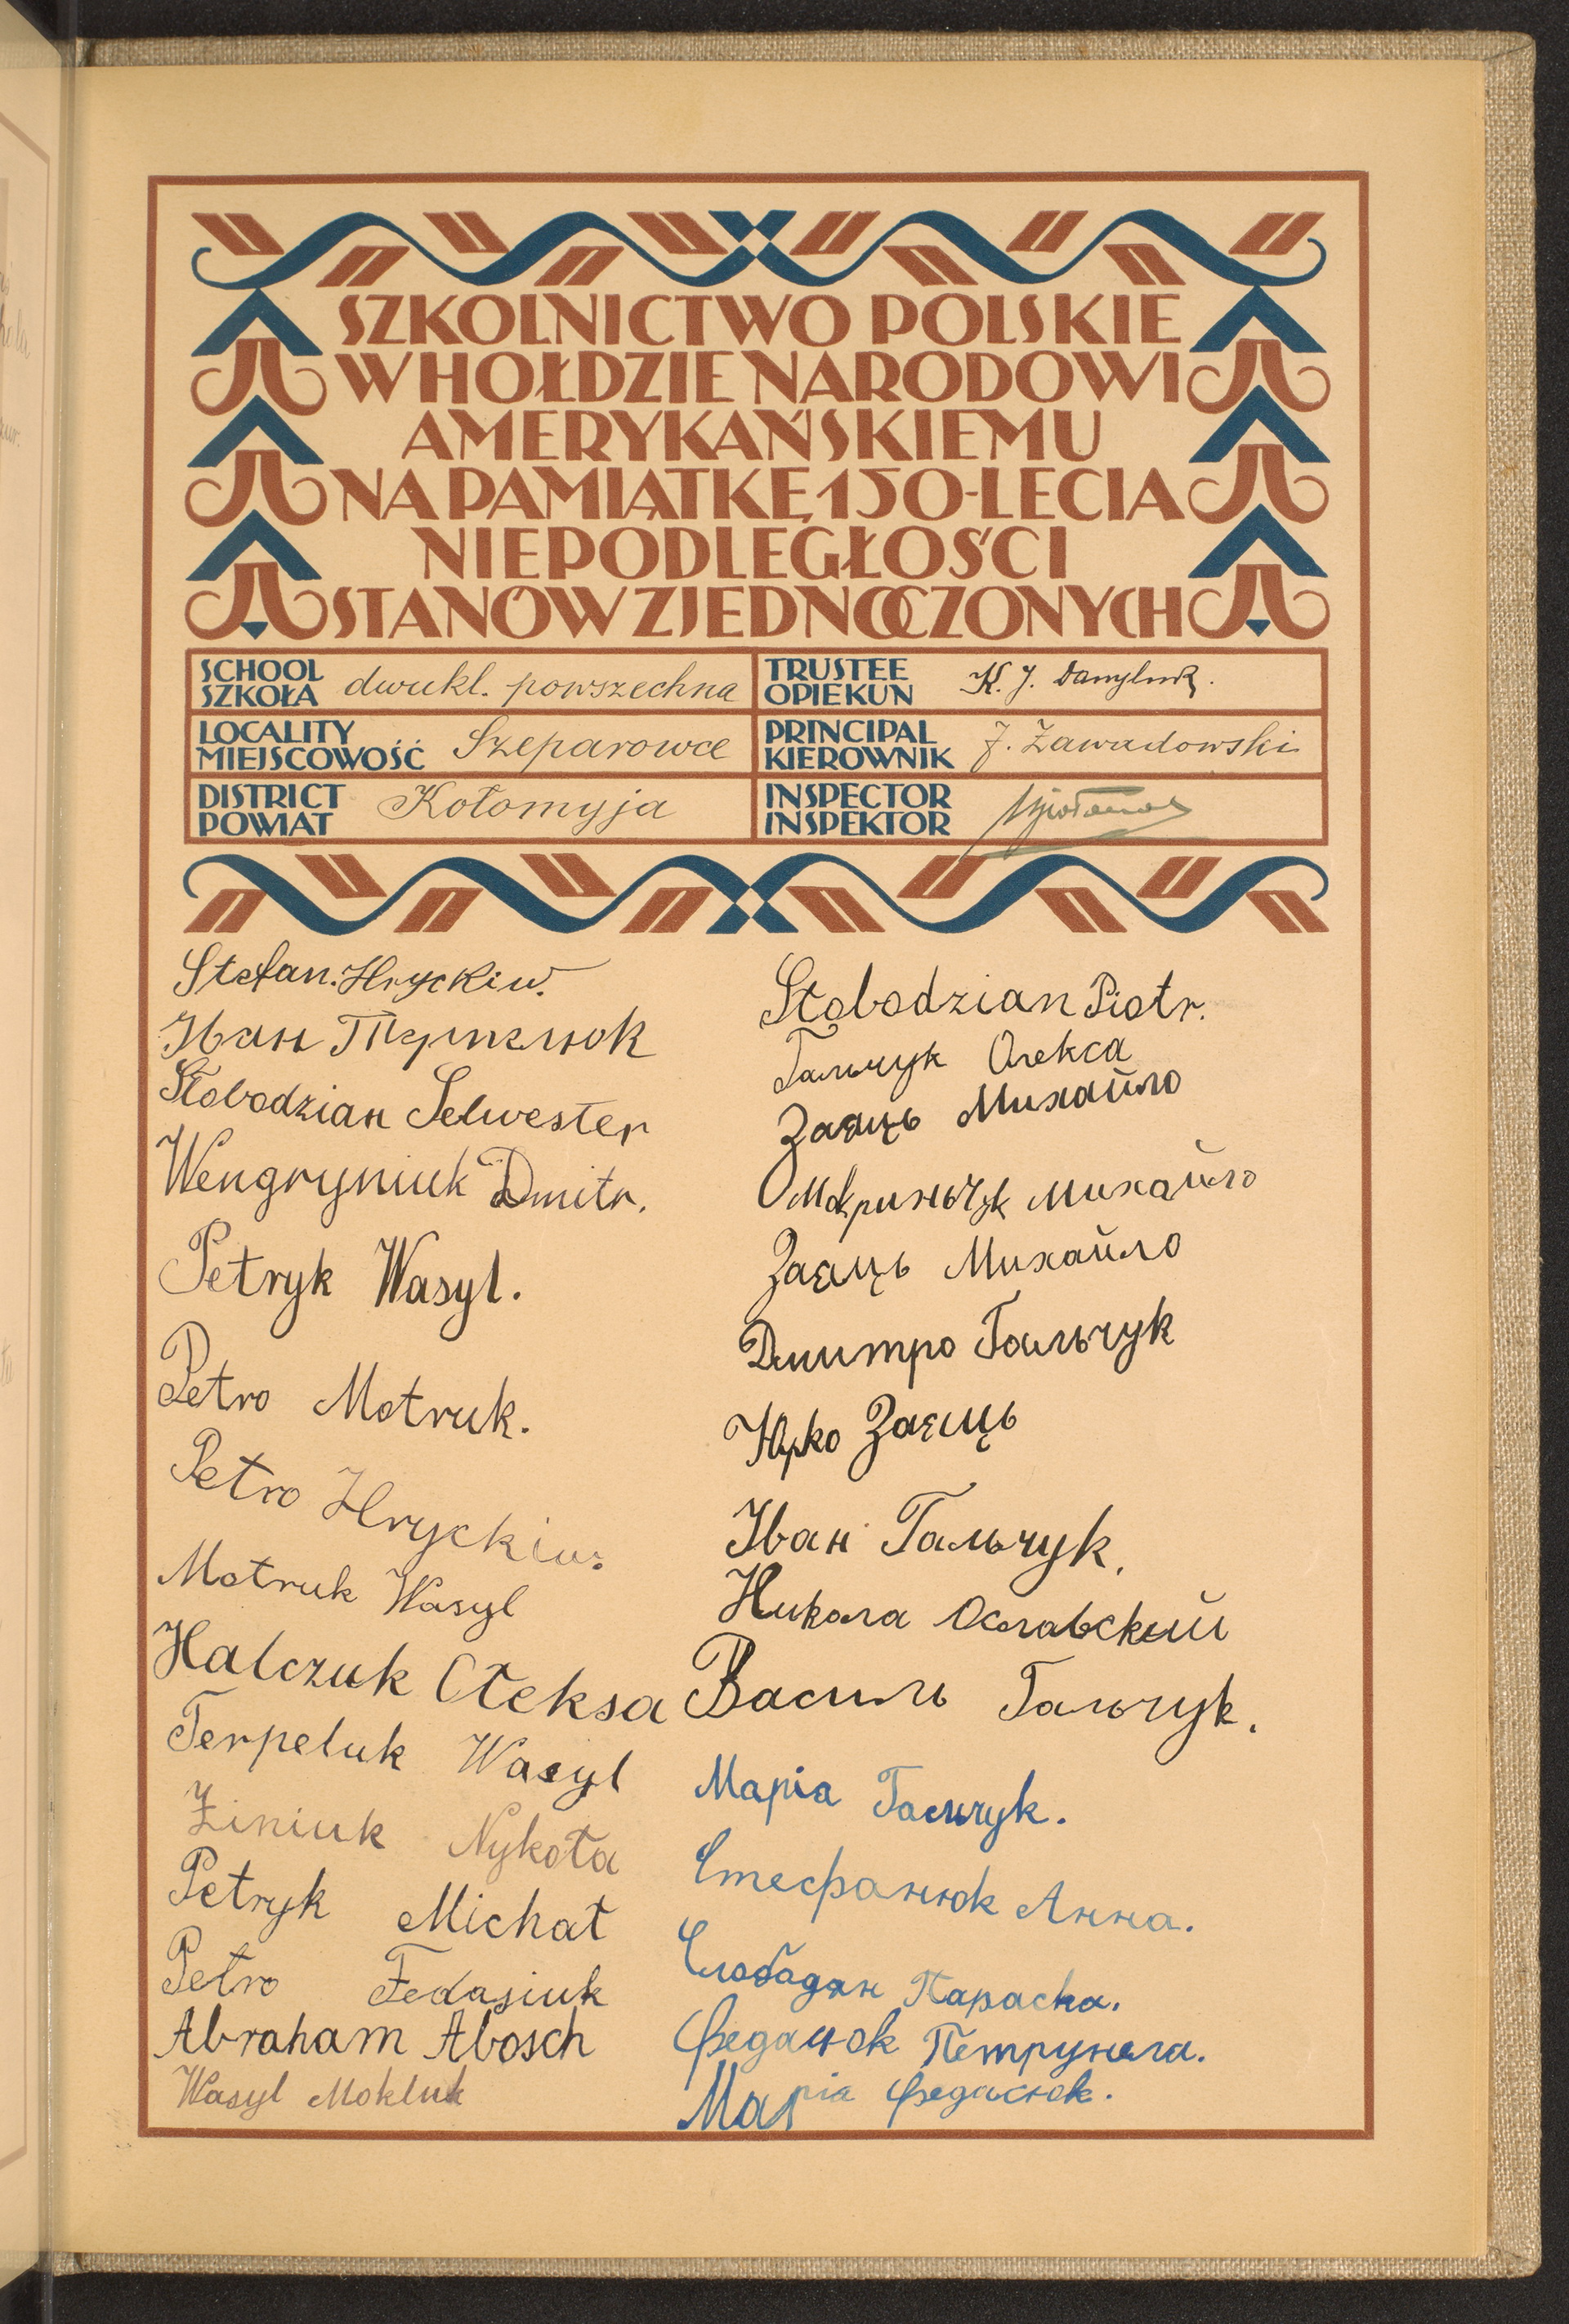 SZKOLNICTWO POLSKIE
W HOŁDZIE NARODOWI
AMERYKAŃSKIEMU
NA PAMIĄTKĘ 150-LECIA
NIEPODLEGŁOŚCI
STANÓW ZJEDNOCZONYCH
SCHOOL
SZKOŁA dwukl. powszechna
TRUSTEE
OPIEKUN K. J. Danyluk.
LOCALITY
MIEJSCOWOŚĆ Szeparowce
PRINCIPAL
KIEROWNIK J. Zawadowski
DISTRICT
POWIAT Kołomyja
INSPECTOR
INSPEKTOR
Stefan. Hryckiw.
Іван
Słobodzian Selwester
Wengryniuk Dmitr.
Petryk Wasyl.
Petro Motruk.
Petro Hryckiw.
Motruk Wasyl
Halczuk Ołeksa
Terpeluk Wasyl
Ziniuk Nykoła
Petryk Michał
Petro Fedasiuk
Abraham Abosch
Wasyl Mokluk
Słobodzian Piotr.
Гальчук Олекса
Заяць Михайло
Михайло
Заєць Михайло
Дмитро Гальчук
Юрко Заєць
Іван Гальчук.
Никола Ославский
Василь Гальчук.
Марія Гальчук.
Стефанюк Анна.
Слободян Параска.
Петрунеля.
Марія Федасюк.